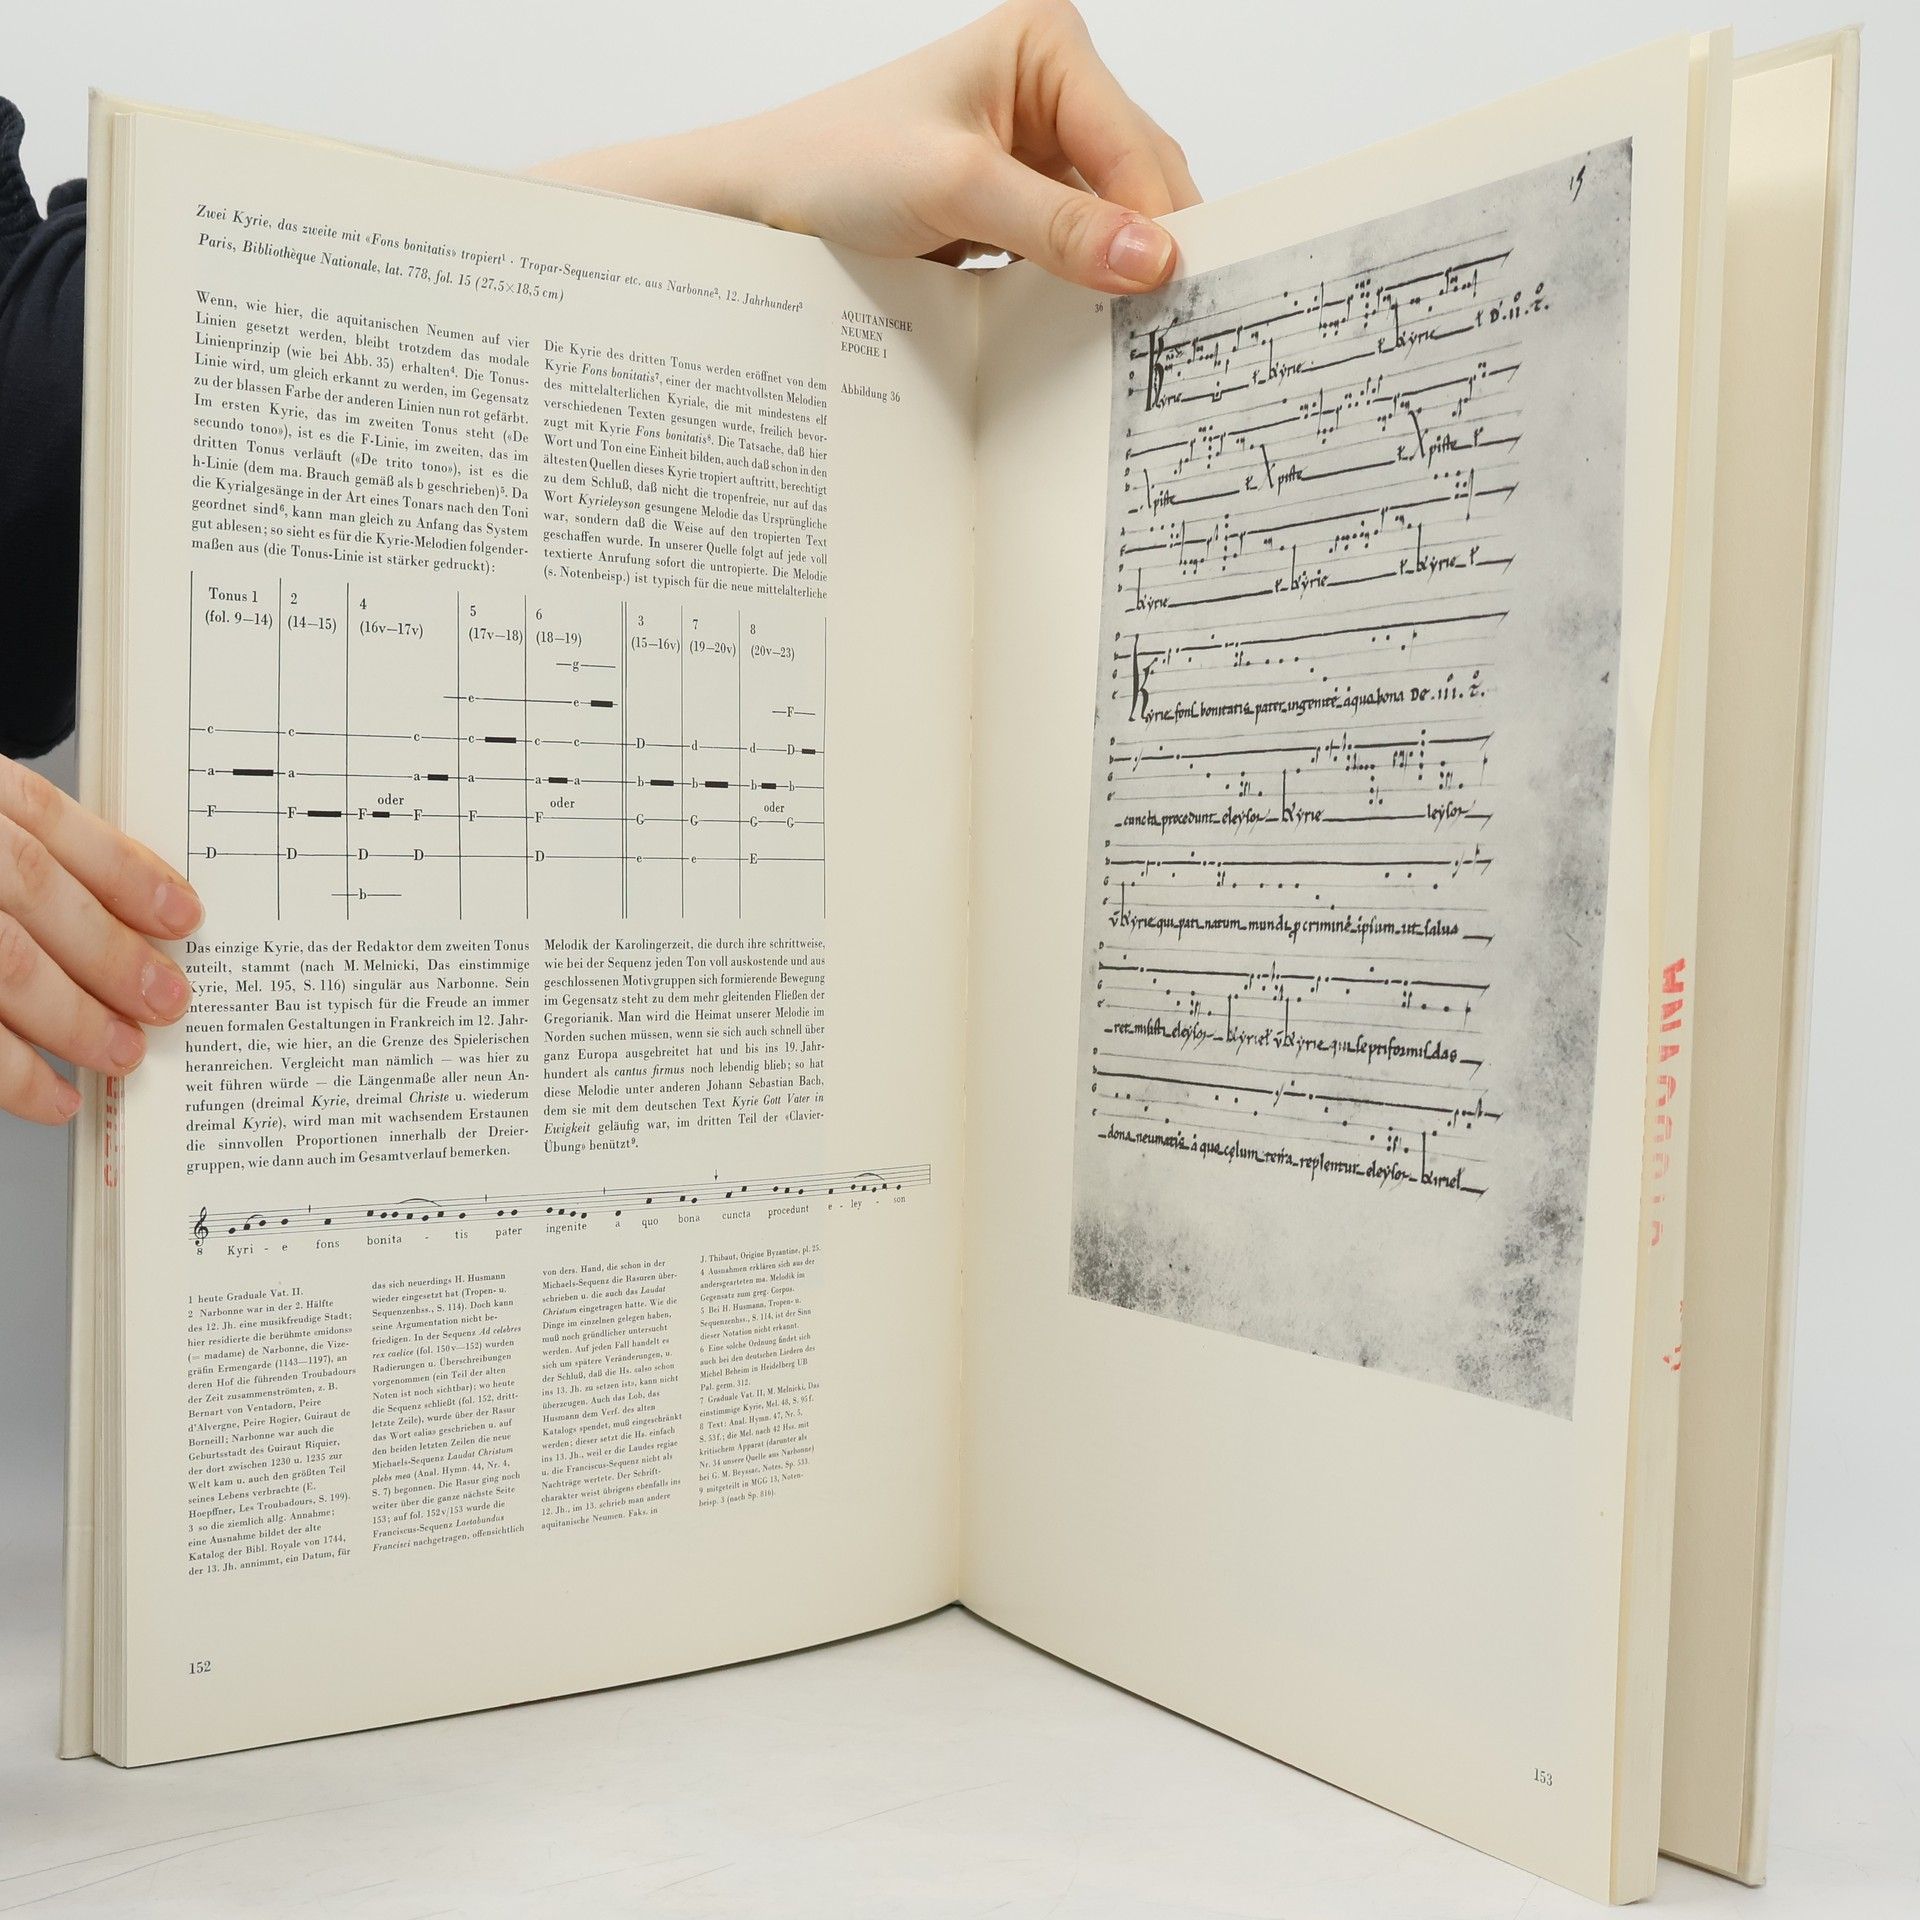 Zwei Kyrie, das zweite mit «Fons bonitatis» tropiert¹ · Tropar-Sequenziar etc. aus Narbonne², 12. Jahrhundert³
Paris, Bibliothèque Nationale, lat. 778, fol. 15 (27,5×18,5 cm)
Wenn, wie hier, die aquitanischen Neumen auf vier
Linien gesetzt werden, bleibt trotzdem das modale
Linienprinzip (wie bei Abb. 35) erhalten⁴. Die Tonus-
Linie wird, um gleich erkannt zu werden, im Gegensatz
zu der blassen Farbe der anderen Linien nun rot gefärbt.
Im ersten Kyrie, das im zweiten Tonus steht («De
secundo tono»), ist es die F-Linie, im zweiten, das im
dritten Tonus verläuft («De trito tono»), ist es die
h-Linie (dem ma. Brauch gemäß als b geschrieben)⁵. Da
die Kyrialgesänge in der Art eines Tonars nach den Toni
geordnet sind⁶, kann man gleich zu Anfang das System
gut ablesen; so sieht es für die Kyrie-Melodien folgender-
maßen aus (die Tonus-Linie ist stärker gedruckt):
Die Kyrie des dritten Tonus werden eröffnet von dem
Kyrie Fons bonitatis⁷, einer der machtvollsten Melodien
des mittelalterlichen Kyriale, die mit mindestens elf
verschiedenen Texten gesungen wurde, freilich bevor-
zugt mit Kyrie Fons bonitatis⁸. Die Tatsache, daß hier
Wort und Ton eine Einheit bilden, auch daß schon in den
ältesten Quellen dieses Kyrie tropiert auftritt, berechtigt
zu dem Schluß, daß nicht die tropenfreie, nur auf das
Wort Kyrieleyson gesungene Melodie das Ursprüngliche
war, sondern daß die Weise auf den tropierten Text
geschaffen wurde. In unserer Quelle folgt auf jede voll
textierte Anrufung sofort die untropierte. Die Melodie
(s. Notenbeisp.) ist typisch für die neue mittelalterliche
AQUITANISCHE
NEUMEN
EPOCHE I
Abbildung 36
Tonus 1 2 4 5 6 3 7 8
(fol. 9—14) (14—15) (16v—17v) (17v—18) (18—19) (15—16v) (19—20v) (20v—23)
g
e e F
c c c c c c D d d D
a a a a a a b b b b
oder oder oder
F F F F F F G G G G
D D D D D e e E
b
Das einzige Kyrie, das der Redaktor dem zweiten Tonus
zuteilt, stammt (nach M. Melnicki, Das einstimmige
Kyrie, Mel. 195, S. 116) singulär aus Narbonne. Sein
interessanter Bau ist typisch für die Freude an immer
neuen formalen Gestaltungen in Frankreich im 12. Jahr-
hundert, die, wie hier, an die Grenze des Spielerischen
heranreichen. Vergleicht man nämlich — was hier zu
weit führen würde — die Längenmaße aller neun An-
rufungen (dreimal Kyrie, dreimal Christe u. wiederum
dreimal Kyrie), wird man mit wachsendem Erstaunen
die sinnvollen Proportionen innerhalb der Dreier-
gruppen, wie dann auch im Gesamtverlauf bemerken.
Melodik der Karolingerzeit, die durch ihre schrittweise,
wie bei der Sequenz jeden Ton voll auskostende und aus
geschlossenen Motivgruppen sich formierende Bewegung
im Gegensatz steht zu dem mehr gleitenden Fließen der
Gregorianik. Man wird die Heimat unserer Melodie im
Norden suchen müssen, wenn sie sich auch schnell über
ganz Europa ausgebreitet hat und bis ins 19. Jahr-
hundert als cantus firmus noch lebendig blieb; so hat
diese Melodie unter anderen Johann Sebastian Bach,
dem sie mit dem deutschen Text Kyrie Gott Vater in
Ewigkeit geläufig war, im dritten Teil der «Clavier-
Übung» benützt⁹.
8 Kyri - e fons bonita - tis pater ingenite a quo bona cuncta procedunt e - ley - son
1 heute Graduale Vat. II.
2 Narbonne war in der 2. Hälfte
des 12. Jh. eine musikfreudige Stadt;
hier residierte die berühmte «midons»
(= madame) de Narbonne, die Vize-
gräfin Ermengarde (1143—1197), an
deren Hof die führenden Troubadours
der Zeit zusammenströmten, z. B.
Bernart von Ventadorn, Peire
d'Alvergne, Peire Rogier, Guiraut de
Borneill; Narbonne war auch die
Geburtsstadt des Guiraut Riquier,
der dort zwischen 1230 u. 1235 zur
Welt kam u. auch den größten Teil
seines Lebens verbrachte (E.
Hoepffner, Les Troubadours, S. 199).
3 so die ziemlich allg. Annahme;
eine Ausnahme bildet der alte
Katalog der Bibl. Royale von 1744,
der 13. Jh. annimmt, ein Datum, für
das sich neuerdings H. Husmann
wieder eingesetzt hat (Tropen- u.
Sequenzenhss., S. 114). Doch kann
seine Argumentation nicht be-
friedigen. In der Sequenz Ad celebres
rex caelice (fol. 150v—152) wurden
Radierungen u. Überschreibungen
vorgenommen (ein Teil der alten
Noten ist noch sichtbar); wo heute
die Sequenz schließt (fol. 152, dritt-
letzte Zeile), wurde über der Rasur
das Wort «alia» geschrieben u. auf
den beiden letzten Zeilen die neue
Michaels-Sequenz Laudat Christum
plebs mea (Anal. Hymn. 44, Nr. 4,
S. 7) begonnen. Die Rasur ging noch
weiter über die ganze nächste Seite
153; auf fol. 152v/153 wurde die
Franciscus-Sequenz Laetabundus
Francisci nachgetragen, offensichtlich
von ders. Hand, die schon in der
Michaels-Sequenz die Rasuren über-
schrieben u. die auch das Laudat
Christum eingetragen hatte. Wie die
Dinge im einzelnen gelegen haben,
muß noch gründlicher untersucht
werden. Auf jeden Fall handelt es
sich um spätere Veränderungen, u.
der Schluß, daß die Hs. «also schon
ins 13. Jh. zu setzen ist», kann nicht
überzeugen. Auch das Lob, das
Husmann dem Verf. des alten
Katalogs spendet, muß eingeschränkt
werden; dieser setzt die Hs. einfach
ins 13. Jh., weil er die Laudes regiae
u. die Franciscus-Sequenz nicht als
Nachträge wertete. Der Schrift-
charakter weist übrigens ebenfalls ins
12. Jh., im 13. schrieb man andere
aquitanische Neumen. Faks. in
J. Thibaut, Origine Byzantine, pl. 25.
4 Ausnahmen erklären sich aus der
andersgearteten ma. Melodik im
Gegensatz zum greg. Corpus.
5 Bei H. Husmann, Tropen- u.
Sequenzenhss., S. 114, ist der Sinn
dieser Notation nicht erkannt.
6 Eine solche Ordnung findet sich
auch bei den deutschen Liedern des
Michel Beheim in Heidelberg UB
Pal. germ. 312.
7 Graduale Vat. II, M. Melnicki, Das
einstimmige Kyrie, Mel. 48, S. 95f.
8 Text: Anal. Hymn. 47, Nr. 5,
S. 53f.; die Mel. nach 42 Hss. mit
kritischem Apparat (darunter als
Nr. 34 unsere Quelle aus Narbonne)
bei G. M. Beyssac, Notes, Sp. 533.
9 mitgeteilt in MGG 13, Noten-
beisp. 3 (nach Sp. 816).
152
36
15
kyrie kyrie D. ii. t.
yrie
piste piste piste
kyrie kyrie kyrie
Kyrie fons bonitatis pater ingenite a qua bona De . iii. t.
cuncta procedunt eleyson kyrie leyson
kyrie qui pati natum mundi p crimine ipsum ut salua
ret misisti eleyson kyriel kyrie qui septiformis das
dona neumatis a qua celum terra replentur eleyson kiriel
153